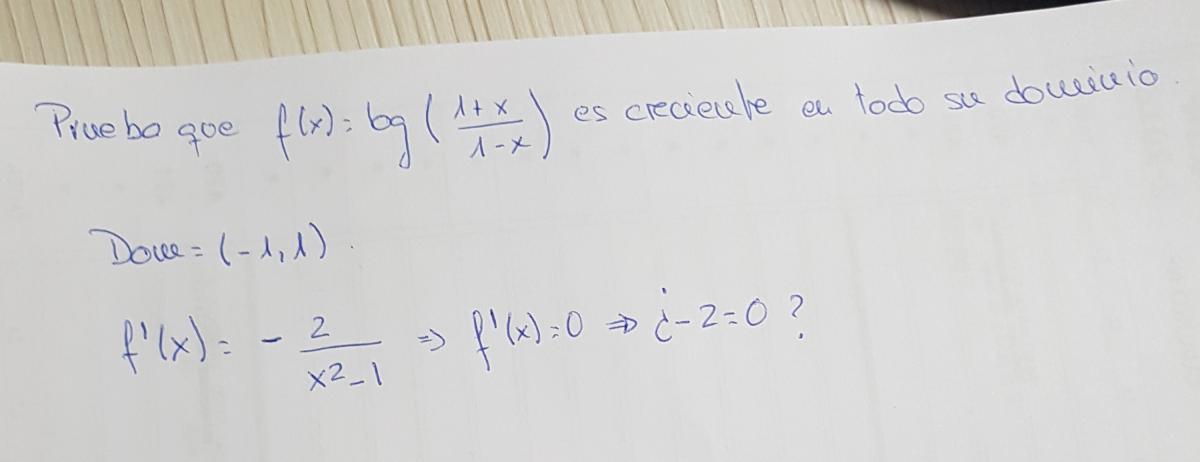 Pruebo que f(x) = log (1+x / 1-x) es creciente en todo su dominio.
Dom = (-1, 1).
f'(x) = - 2 / x²-1 ⇒ f'(x) = 0 ⇒ ¿-2=0?